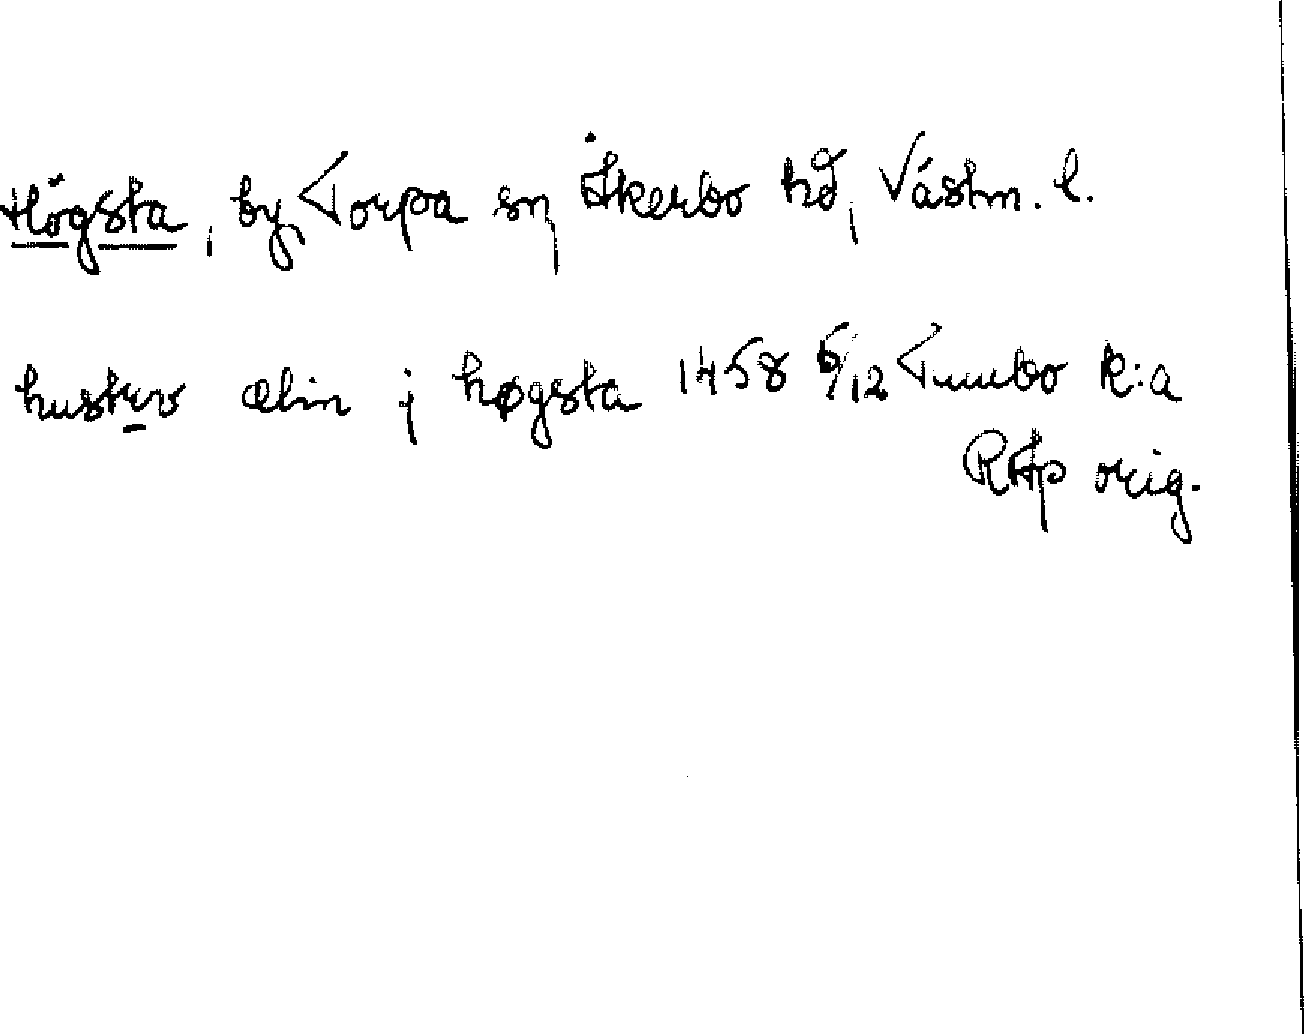 Högsta, by, Torpa sn, Åkerbo hd, Västm. l.
hustrv ælin j høgsta 1458 6/12 Tumbo k:a
RAp orig.